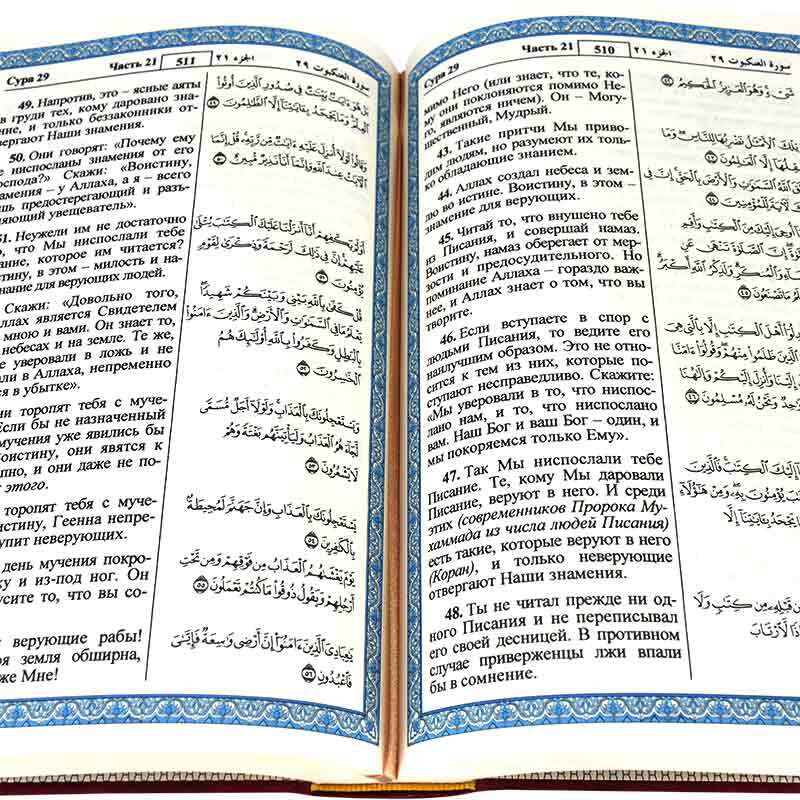 Сура 29 Часть 21 510 الجزء ٢١ سورة العنكبوت ٢٩
мимо Него (или знает, что те, ко-
му они поклоняются помимо Не-
го, являются ничем). Он – Могу-
щественный, Мудрый.
43. Такие притчи Мы приво-
дим людям, но разумеют их толь-
ко обладающие знанием.
44. Аллах создал небеса и зем-
лю во истине. Воистину, в этом –
знамение для верующих.
45. Читай то, что внушено тебе
из Писания, и совершай намаз.
Воистину, намаз оберегает от мер-
зости и предосудительного. Но
поминание Аллаха – гораздо важ-
нее, и Аллах знает о том, что вы
творите.
46. Если вступаете в спор с
людьми Писания, то ведите его
наилучшим образом. Это не отно-
сится к тем из них, которые по-
ступают несправедливо. Скажите:
«Мы уверовали в то, что ниспос-
лано нам, и то, что ниспослано
вам. Наш Бог и ваш Бог – один, и
мы покоряемся только Ему».
47. Так Мы ниспослали тебе
Писание. Те, кому Мы даровали
Писание, веруют в него. И среди
этих (современников Пророка Му-
хаммада из числа людей Писания)
есть такие, которые веруют в него
(Коран), и только неверующие
отвергают Наши знамения.
48. Ты не читал прежде ни од-
ного Писания и не переписывал
его своей десницей. В противном
случае приверженцы лжи впали
бы в сомнение.
شَىْءٍ وَهُوَ ٱلْعَزِيزُ ٱلْحَكِيمُ ٤٢
ٱلْأَمْثَٰلُ نَضْرِبُهَا لِلنَّاسِ وَمَا
إِلَّا ٱلْعَٰلِمُونَ ٤٣
ٱللَّهُ ٱلسَّمَٰوَٰتِ وَٱلْأَرْضَ بِٱلْحَقِّ إِنَّ فِى
لَءَايَةً لِّلْمُؤْمِنِينَ
إِلَيْكَ مِنَ ٱلْكِتَٰبِ وَأَقِمِ
إِنَّ ٱلصَّلَوٰةَ تَنْهَىٰ عَنِ
وَٱلْمُنكَرِ وَلَذِكْرُ ٱللَّهِ أَكْبَرُ
مَا تَصْنَعُونَ ٤٥
أَهْلَ ٱلْكِتَٰبِ إِلَّا بِٱلَّتِى هِىَ
ٱلَّذِينَ ظَلَمُوا۟ مِنْهُمْ وَقُولُوٓا۟ ءَامَنَّا
إِلَيْنَا وَأُنزِلَ إِلَيْكُمْ وَإِلَٰهُنَا
وَنَحْنُ لَهُۥ مُسْلِمُونَ ٤٦
إِلَيْكَ ٱلْكِتَٰبَ فَٱلَّذِينَ
يُؤْمِنُونَ بِهِۦ وَمِنْ هَٰٓؤُلَآءِ
يَجْحَدُ بِـَٔايَٰتِنَآ إِلَّا
مِن قَبْلِهِۦ مِن كِتَٰبٍ وَلَا
إِذًا لَّٱرْتَابَ
Сура 29 Часть 21 511 الجزء ٢١ سورة العنكبوت ٢٩
49. Напротив, это – ясные аяты
в груди тех, кому даровано зна-
ние, и только беззаконники от-
вергают Наши знамения.
50. Они говорят: «Почему ему
не ниспосланы знамения от его
Господа?» Скажи: «Воистину,
знамения – у Аллаха, а я – всего
лишь предостерегающий и разъ-
ясняющий увещеватель».
51. Неужели им не достаточно
того, что Мы ниспослали тебе
Писание, которое им читается?
Воистину, в этом – милость и на-
поминание для верующих людей.
Скажи: «Довольно того,
Аллах является Свидетелем
мною и вами. Он знает то,
небесах и на земле. Те же,
уверовали в ложь и не
в Аллаха, непременно
в убытке».
торопят тебя с муче-
Если бы не назначенный
мучения уже явились бы
Воистину, они явятся к
и они даже не по-
этого.
торопят тебя с муче-
Воистину, Геенна непре-
неверующих.
день мучения покро-
и из-под ног. Он
то, что вы со-
верующие рабы!
земля обширна,
же Мне!
بَلْ هُوَ ءَايَٰتٌۢ بَيِّنَٰتٌ فِى صُدُورِ ٱلَّذِينَ أُوتُوا۟
ٱلْعِلْمَ وَمَا يَجْحَدُ بِـَٔايَٰتِنَآ إِلَّا ٱلظَّٰلِمُونَ ٤٩
وَقَالُوا۟ لَوْلَآ أُنزِلَ عَلَيْهِ ءَايَٰتٌ مِّن رَّبِّهِۦ قُلْ إِنَّمَا
ٱلْءَايَٰتُ عِندَ ٱللَّهِ وَإِنَّمَآ أَنَا۠ نَذِيرٌ مُّبِينٌ ٥٠
أَوَلَمْ يَكْفِهِمْ أَنَّآ أَنزَلْنَا عَلَيْكَ ٱلْكِتَٰبَ يُتْلَىٰ
عَلَيْهِمْ إِنَّ فِى ذَٰلِكَ لَرَحْمَةً وَذِكْرَىٰ لِقَوْمٍ
يُؤْمِنُونَ ٥١
قُلْ كَفَىٰ بِٱللَّهِ بَيْنِى وَبَيْنَكُمْ شَهِيدًا
يَعْلَمُ مَا فِى ٱلسَّمَٰوَٰتِ وَٱلْأَرْضِ وَٱلَّذِينَ ءَامَنُوا۟
بِٱلْبَٰطِلِ وَكَفَرُوا۟ بِٱللَّهِ أُو۟لَٰٓئِكَ هُمُ
ٱلْخَٰسِرُونَ ٥٢
وَيَسْتَعْجِلُونَكَ بِٱلْعَذَابِ وَلَوْلَآ أَجَلٌ مُّسَمًّى
لَّجَآءَهُمُ ٱلْعَذَابُ وَلَيَأْتِيَنَّهُم بَغْتَةً وَهُمْ
لَا يَشْعُرُونَ ٥٣
يَسْتَعْجِلُونَكَ بِٱلْعَذَابِ وَإِنَّ جَهَنَّمَ لَمُحِيطَةٌۢ
بِٱلْكَٰفِرِينَ ٥٤
يَوْمَ يَغْشَىٰهُمُ ٱلْعَذَابُ مِن فَوْقِهِمْ وَمِن تَحْتِ
أَرْجُلِهِمْ وَيَقُولُ ذُوقُوا۟ مَا كُنتُمْ تَعْمَلُونَ ٥٥
يَٰعِبَادِىَ ٱلَّذِينَ ءَامَنُوٓا۟ إِنَّ أَرْضِى وَٰسِعَةٌ فَإِيَّٰىَ
فَٱعْبُدُونِ ٥٦